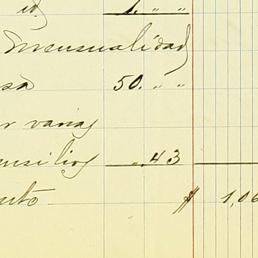 id. 1. " "
mensualidad
sa 50. " "
r varias
ensilios " .43
uto $ 1,06